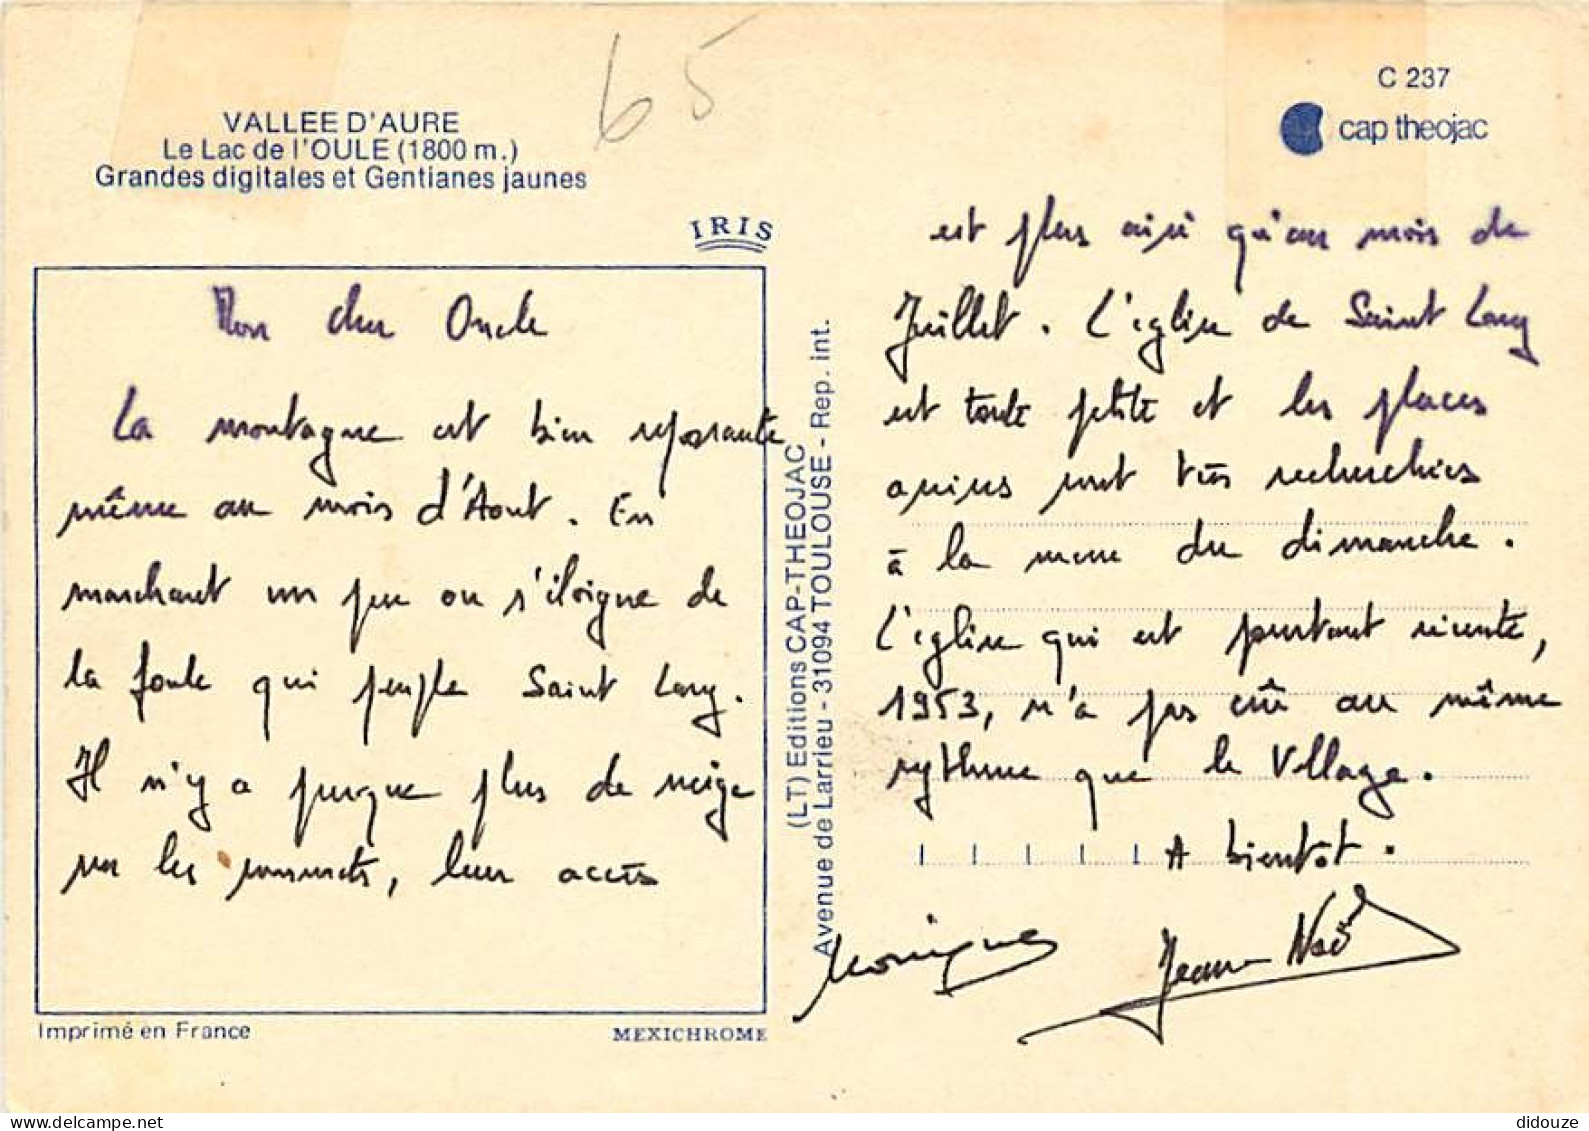 65
C 237
cap theojac
VALLEE D'AURE
Le Lac de l'OULE (1800 m.)
Grandes digitales et Gentianes jaunes
IRIS
Mon cher Oncle
La montagne est bien reposante
même au mois d'Aout. En
marchant un peu on s'éloigne de
la foule qui peuple Saint Lary.
Il n'y a presque plus de neige
sur les sommets, leur accès
est plus aisé qu'au mois de
Juillet. L'eglise de Saint Lary
est toute petite et les places
assises sont très recherchées
à la messe du dimanche.
L'eglise qui est pourtant récente,
1953, n'a pas crû au même
rythme que le Village.
A bientôt.
Monique
Jean Noë
(LT) Editions CAP-THEOJAC
Avenue de Larrieu - 31094 TOULOUSE - Rep. int.
Imprimé en France
MEXICHROME
didouze